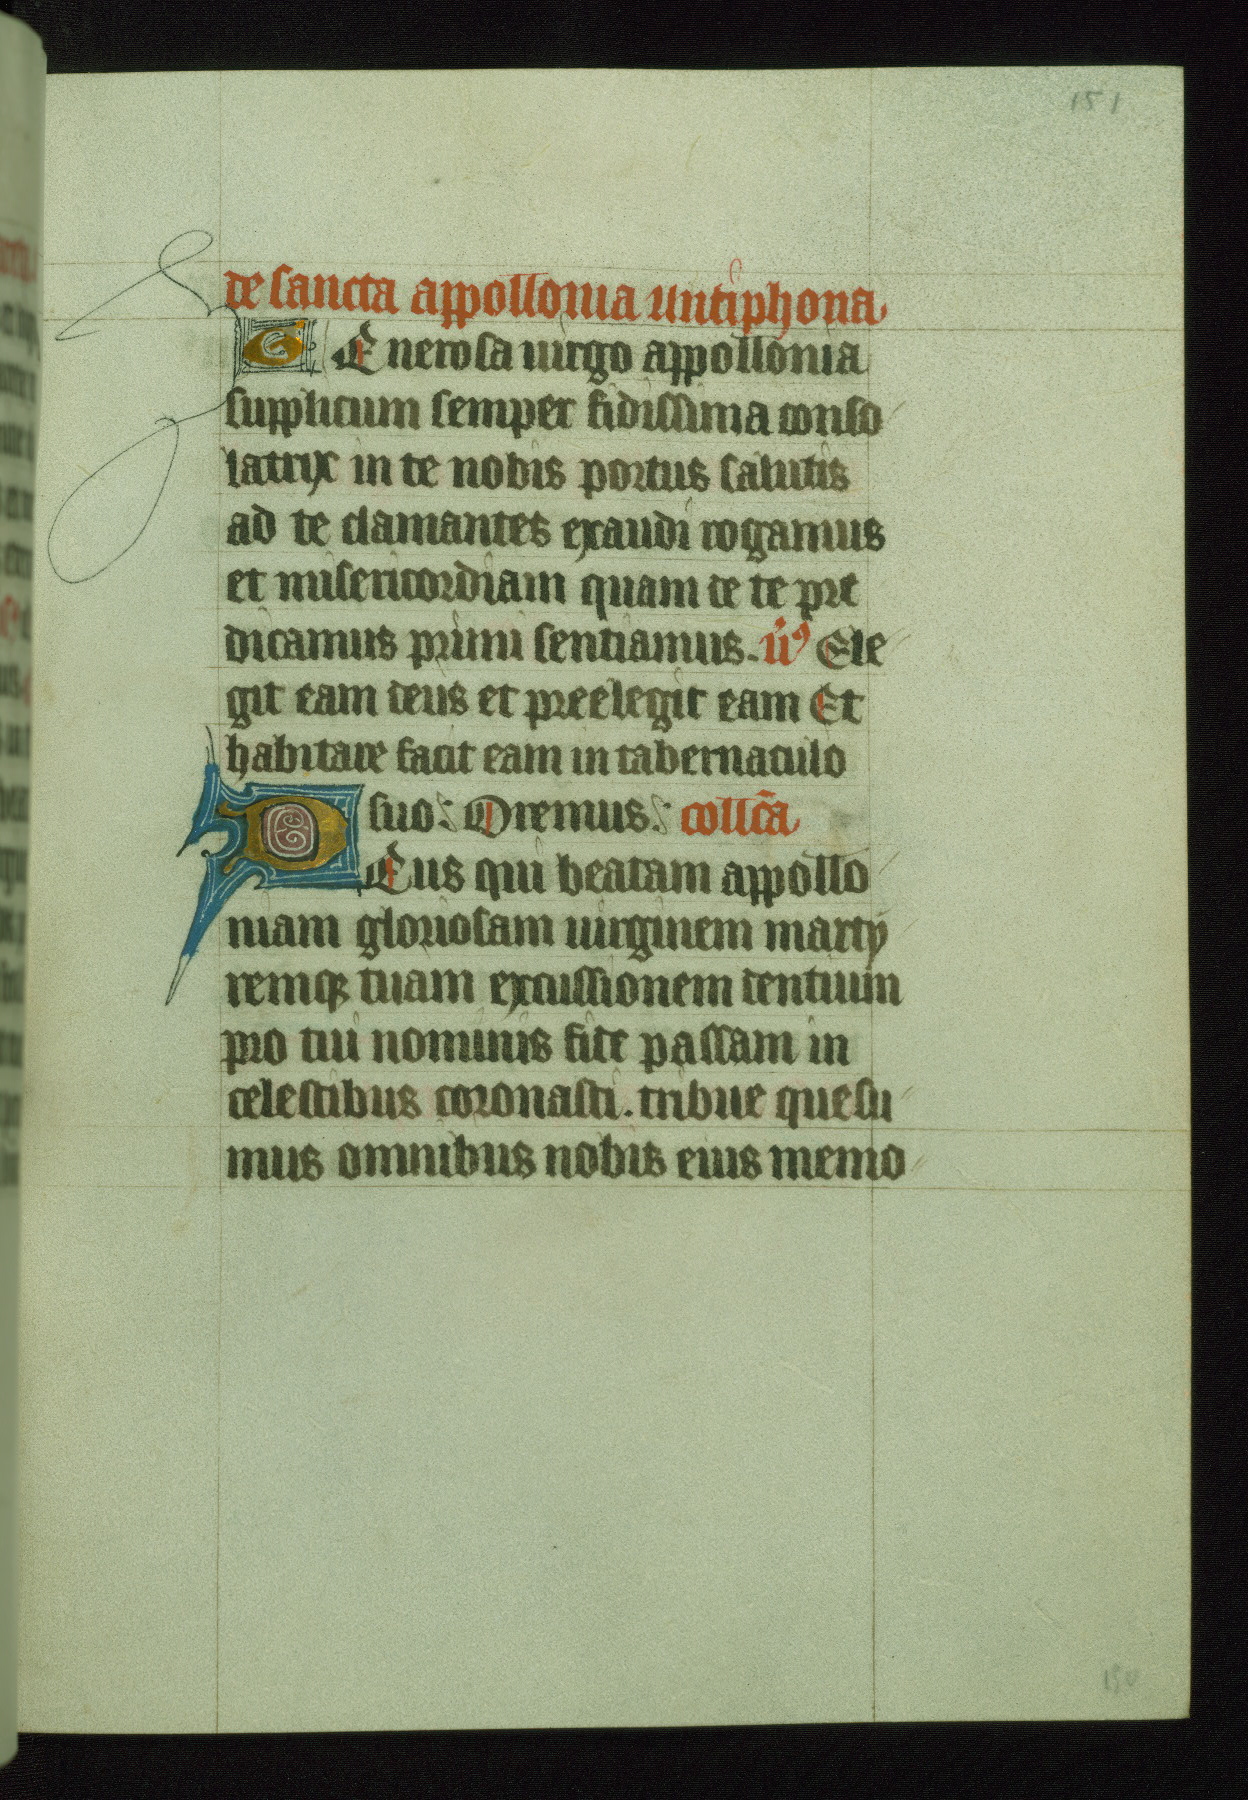 151
de sancta appollonia antiphona
GEnerosa uirgo appollonia
supplicum semper fidissima conso
latrix in te nobis portus salutis
ad te clamantes exaudi rogamus
et misericordiam quam de te pre
dicamus primi sentiamus. v̄s Ele
git eam deus et preelegit eam Et
habitare facit eam in tabernaculo
suo: Oremus: collc̄a
DEus qui beatam appollo
niam gloriosam uirginem marty
remqꝫ tuam excussionem dentium
pro tui nominis fide passam in
celestibus coronasti. tribue quesu
mus omnibus nobis eius memo